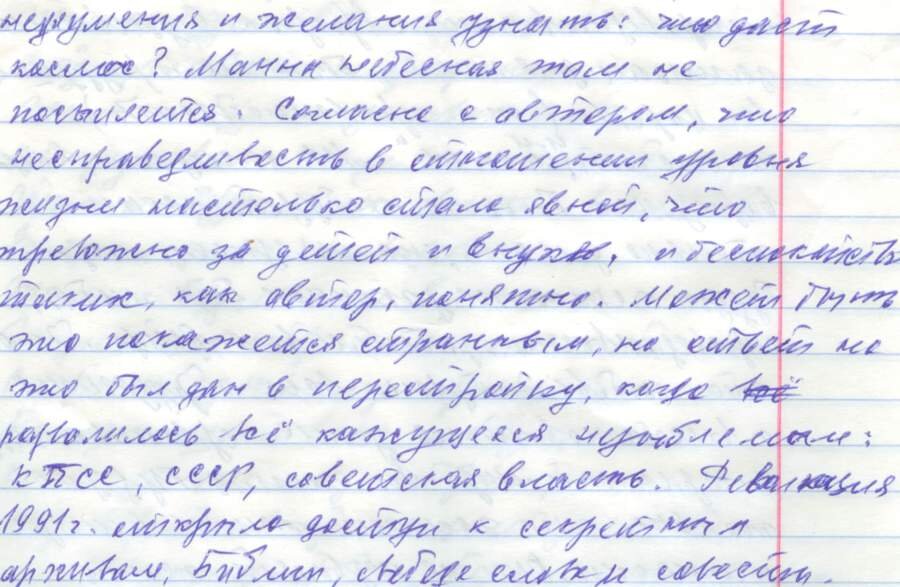 недоумения и желания узнать: что даст
космос? Манна небесная там не
посыплется. Согласна с автором, что
несправедливость в отношении уровня
жизни настолько стала явной, что
тревожно за детей и внуков, и беспокойство
таких, как автор, понятно. Может быть
это покажется странным, но ответ на
это был дан в перестройку, когда всё
развалилось всё кажущееся незыблемым:
КПСС, СССР, советская власть. Революция
1991г. открыла доступ к секретным
архивам, Библии, свободе слова и совести